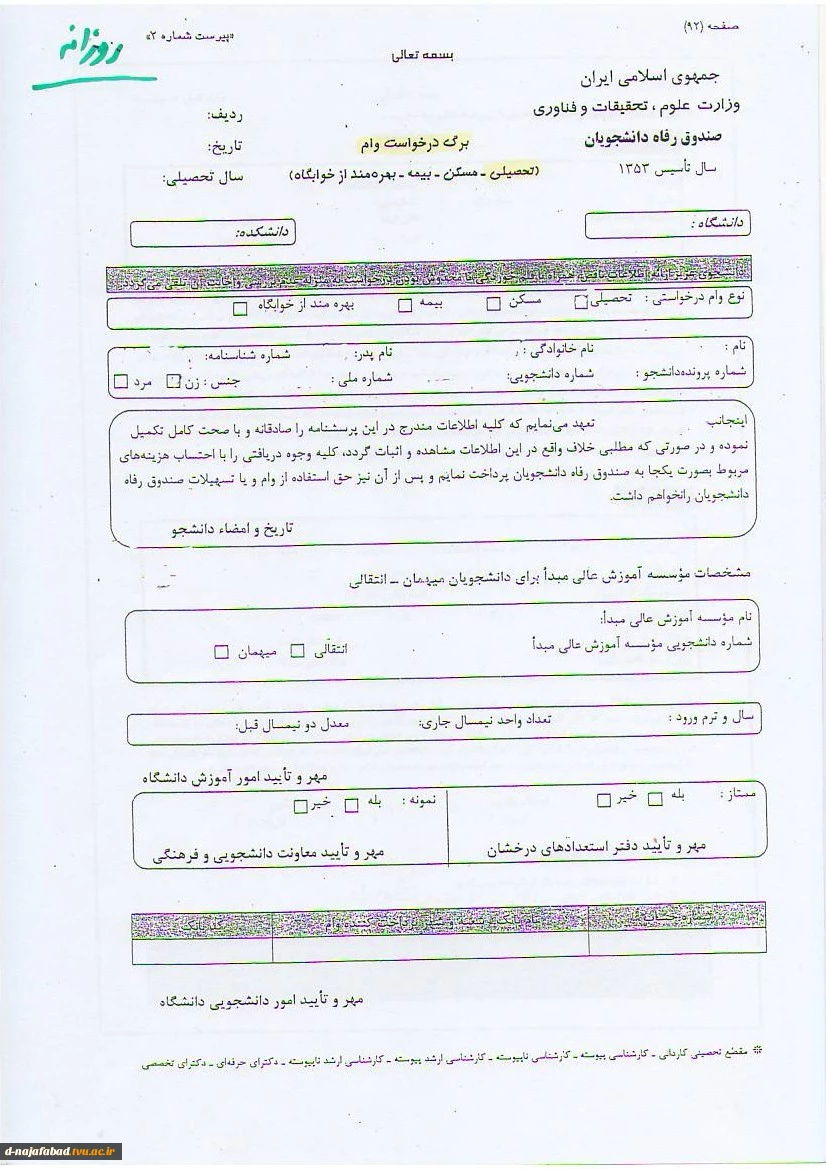 صفحه (۹۲)
«پیوست شماره ۲»
روزانه
بسمه تعالی
جمهوی اسلامی ایران
وزارت علوم ، تحقیقات و فناوری
ردیف:
صندوق رفاه دانشجویان
برگ درخواست وام
تاریخ:
سال تأسیس ۱۳۵۳
(تحصیلی ـ مسکن ـ بیمه ـ بهره‌مند از خوابگاه)
سال تحصیلی:
دانشگاه :
دانشکده:
نوع وام درخواستی : تحصیلی □ مسکن □ بیمه □ بهره مند از خوابگاه □
نام : نام خانوادگی : نام پدر: شماره شناسنامه:
شماره پرونده‌دانشجو : شماره دانشجویی: شماره ملی : جنس : زن □ مرد □
اینجانب تعهد می‌نمایم که کلیه اطلاعات مندرج در این پرسشنامه را صادقانه و با صحت کامل تکمیل
نموده و در صورتی که مطلبی خلاف واقع در این اطلاعات مشاهده و اثبات گردد، کلیه وجوه دریافتی را با احتساب هزینه‌های
مربوط بصورت یکجا به صندوق رفاه دانشجویان پرداخت نمایم و پس از آن نیز حق استفاده از وام و یا تسهیلات صندوق رفاه
دانشجویان رانخواهم داشت.
تاریخ و امضاء دانشجو
مشخصات مؤسسه آموزش عالی مبدأ برای دانشجویان میهمان ـ انتقالی
نام مؤسسه آموزش عالی مبدأ:
شماره دانشجویی مؤسسه آموزش عالی مبدأ انتقالی □ میهمان □
سال و ترم ورود : تعداد واحد نیمسال جاری: معدل دو نیمسال قبل:
مهر و تأیید امور آموزش دانشگاه
ممتاز : بله □ خیر □ نمونه : بله □ خیر □
مهر و تأیید دفتر استعدادهای درخشان
مهر و تأیید معاونت دانشجویی و فرهنگی
شماره حساب
کد بانک
مهر و تأیید امور دانشجویی دانشگاه
※ مقطع تحصیلی کاردانی ـ کارشناسی پیوسته ـ کارشناسی ناپیوسته ـ کارشناسی ارشد پیوسته ـ کارشناسی ارشد ناپیوسته ـ دکترای حرفه‌ای ـ دکترای تخصصی
d-najafabad.tvu.ac.ir